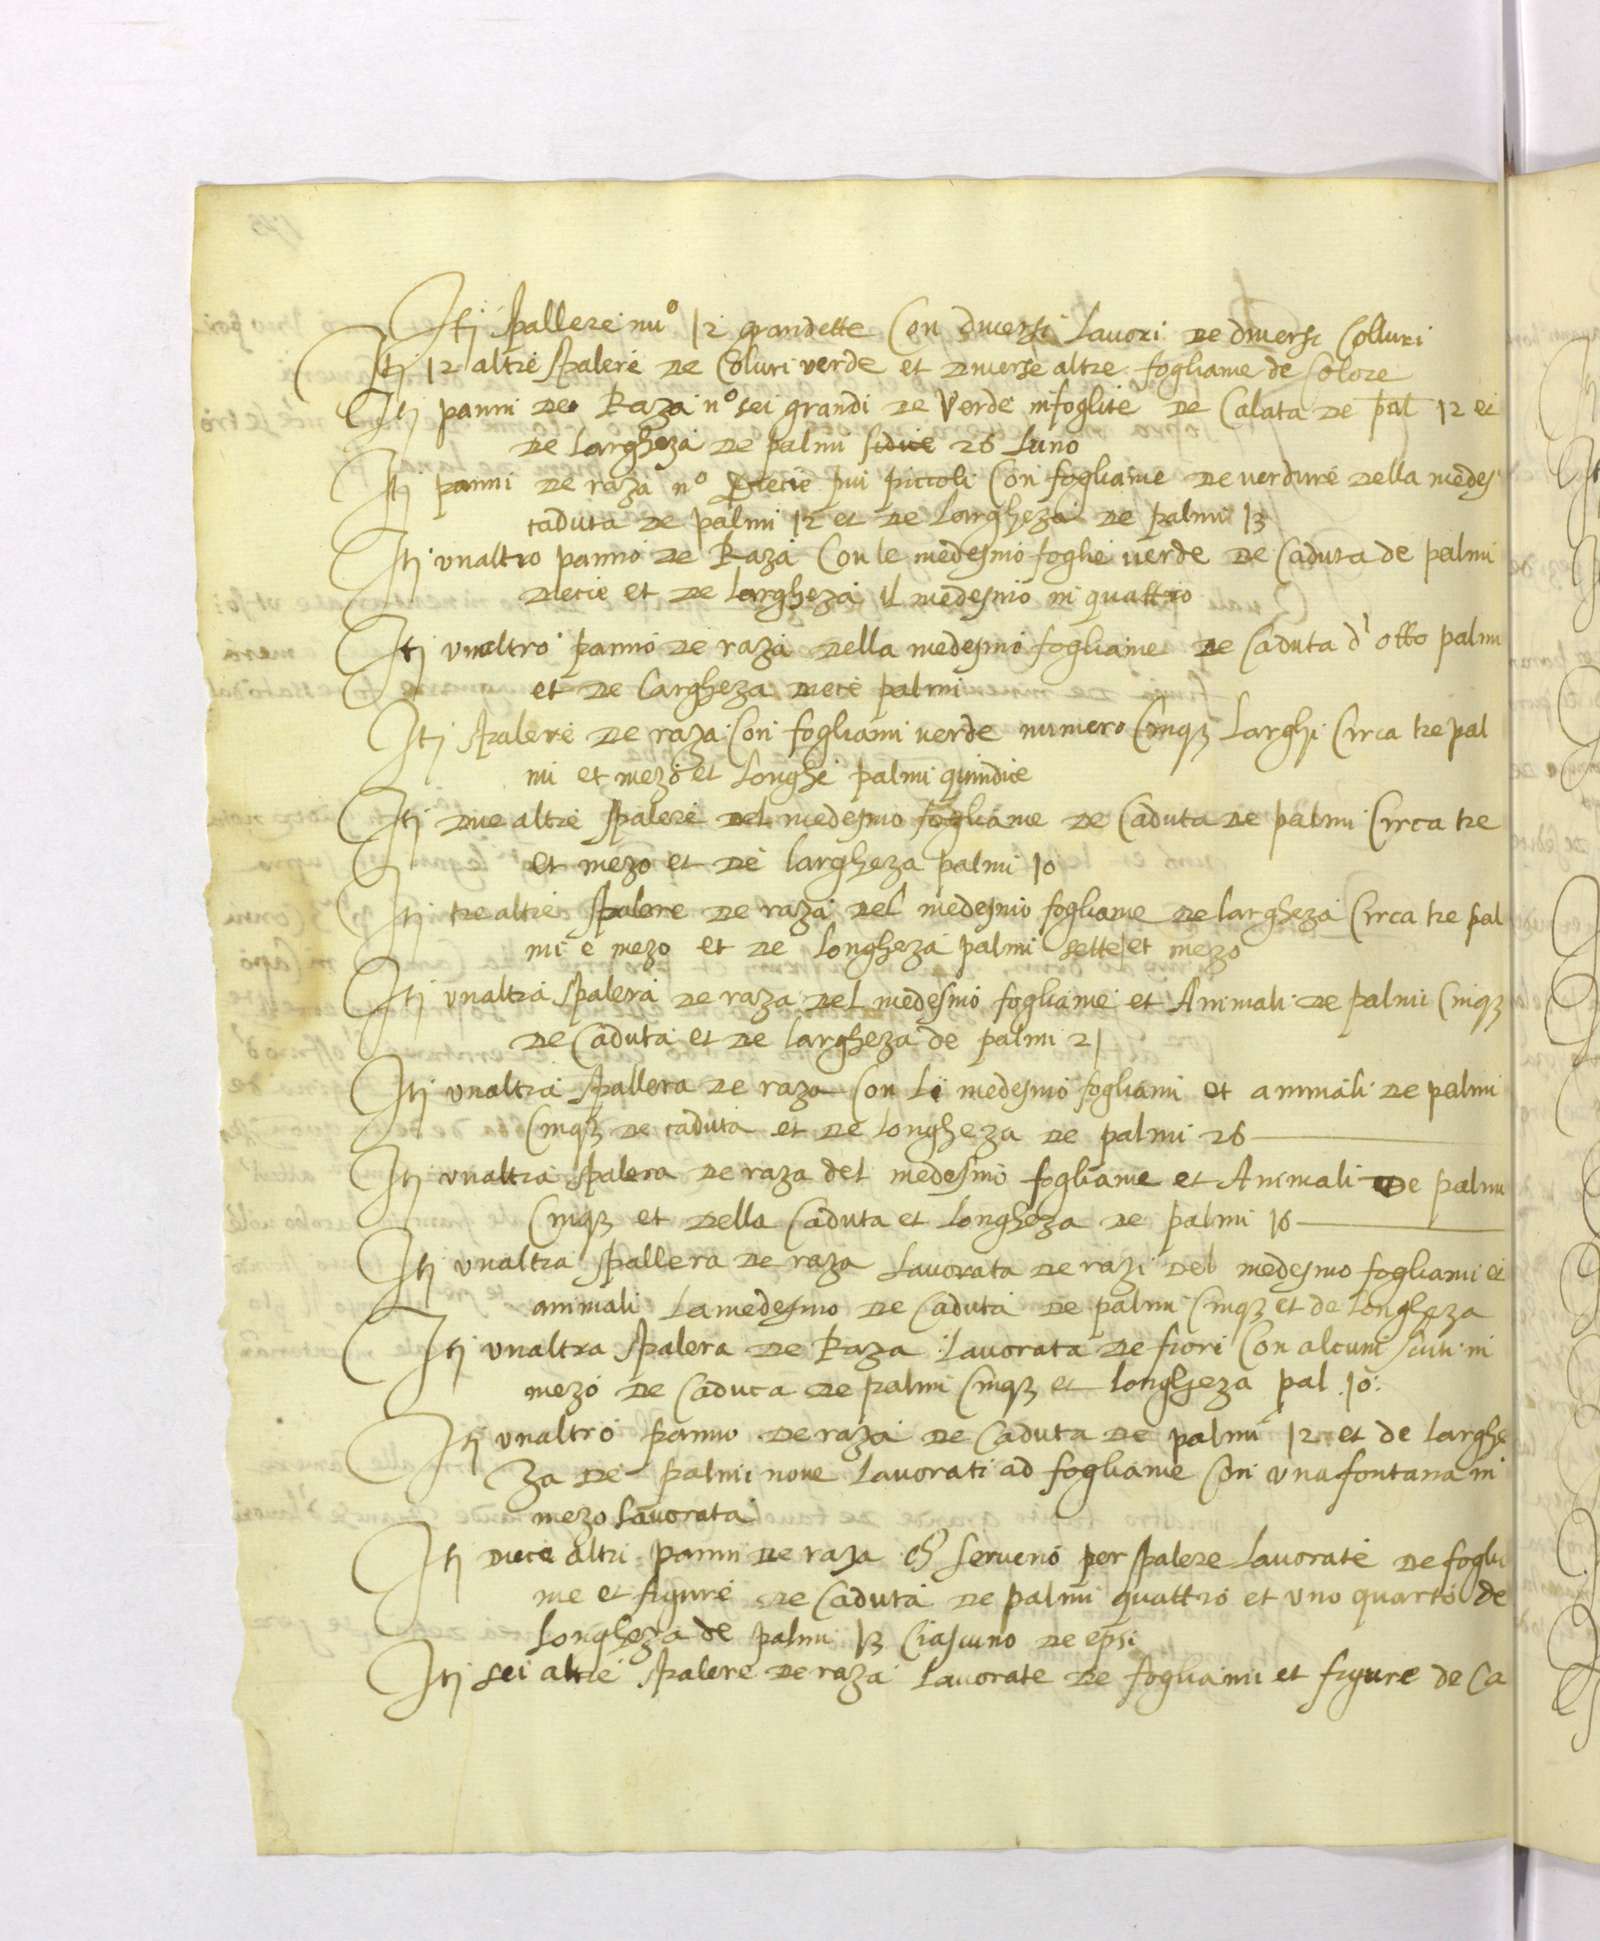 Itj spallere nu° 12 grandette Con diversi Lavori de diversi Colluri
Itj 12 altre spalere de Coluri verde et diverse altre fogliame de Colore
Itj panni de Raza n° sei grandi de Verde infoglite de Calata de pal 12 et
de Largheza de palmi sidice 26 Luno
Itj panni de raza n° diecie piu piccoli Con fogliame de verdure della medes
caduta de palmi 12 et de Largheza de palmi 13
Itj unaltro panno de Raza Con le medesmo foglie verde de Caduta de palmi
diecie et de Largheza il medesmo in quattro
Itj unaltro panno de raza della medesmo fogliame de Caduta d'otto palmi
et de Largheza diece palmi
Itj spalere de raza Con fogliami verde numero Cinq3 Larghi Circa tre pal
mi et mezo et Longhe palmi quindice
Itj due altre spalere del medesmo fogliame de Caduta de palmi Circa tre
et mezo et de largheza palmi 10
Itj tre altre spalere de raza del medesmo fogliame de largheza Circa tre pal
mi e mezo et de Longheza palmi sette et mezo
Itj unaltra spalera de raza del medesmo fogliame et Animali de palmi Cinq3
de Caduta et de largheza de palmi 21
Itj unaltra spallera de raza Con Li medesmo fogliami et animali de palmi
Cinq3 de caduta et de longheza de palmi 26
Itj unaltra spalera de raza del medesmo fogliame et Animali de palmi
Cinq3 et della Caduta et Longheza de palmi 16
Itj unaltra spallera de raza Lavorata de razi del medesmo fogliami et
animali La medesmo de Caduta de palmi Cinq3 et de Longheza
Itj unaltra spalera de Raza Lavorata de fiori Con alcuni scuti in
mezo de Caduta de palmi Cinq3 et longheza pal 10
Itj unaltro panno de raza de Caduta de palmi 12 et de Larghe
za de palmi nove Lavorati ad fogliame Con una fontana in
mezo Lavorata
Itj diece altri panni de raza ch serveno per spalere Lavorate de foglia
me et figure de Caduta de palmi quattro et uno quarto de
Longheza de palmi 13 Ciascuno de epsi
Itj sei altre spalere de raza Lavorate de fogliami et figure de Ca